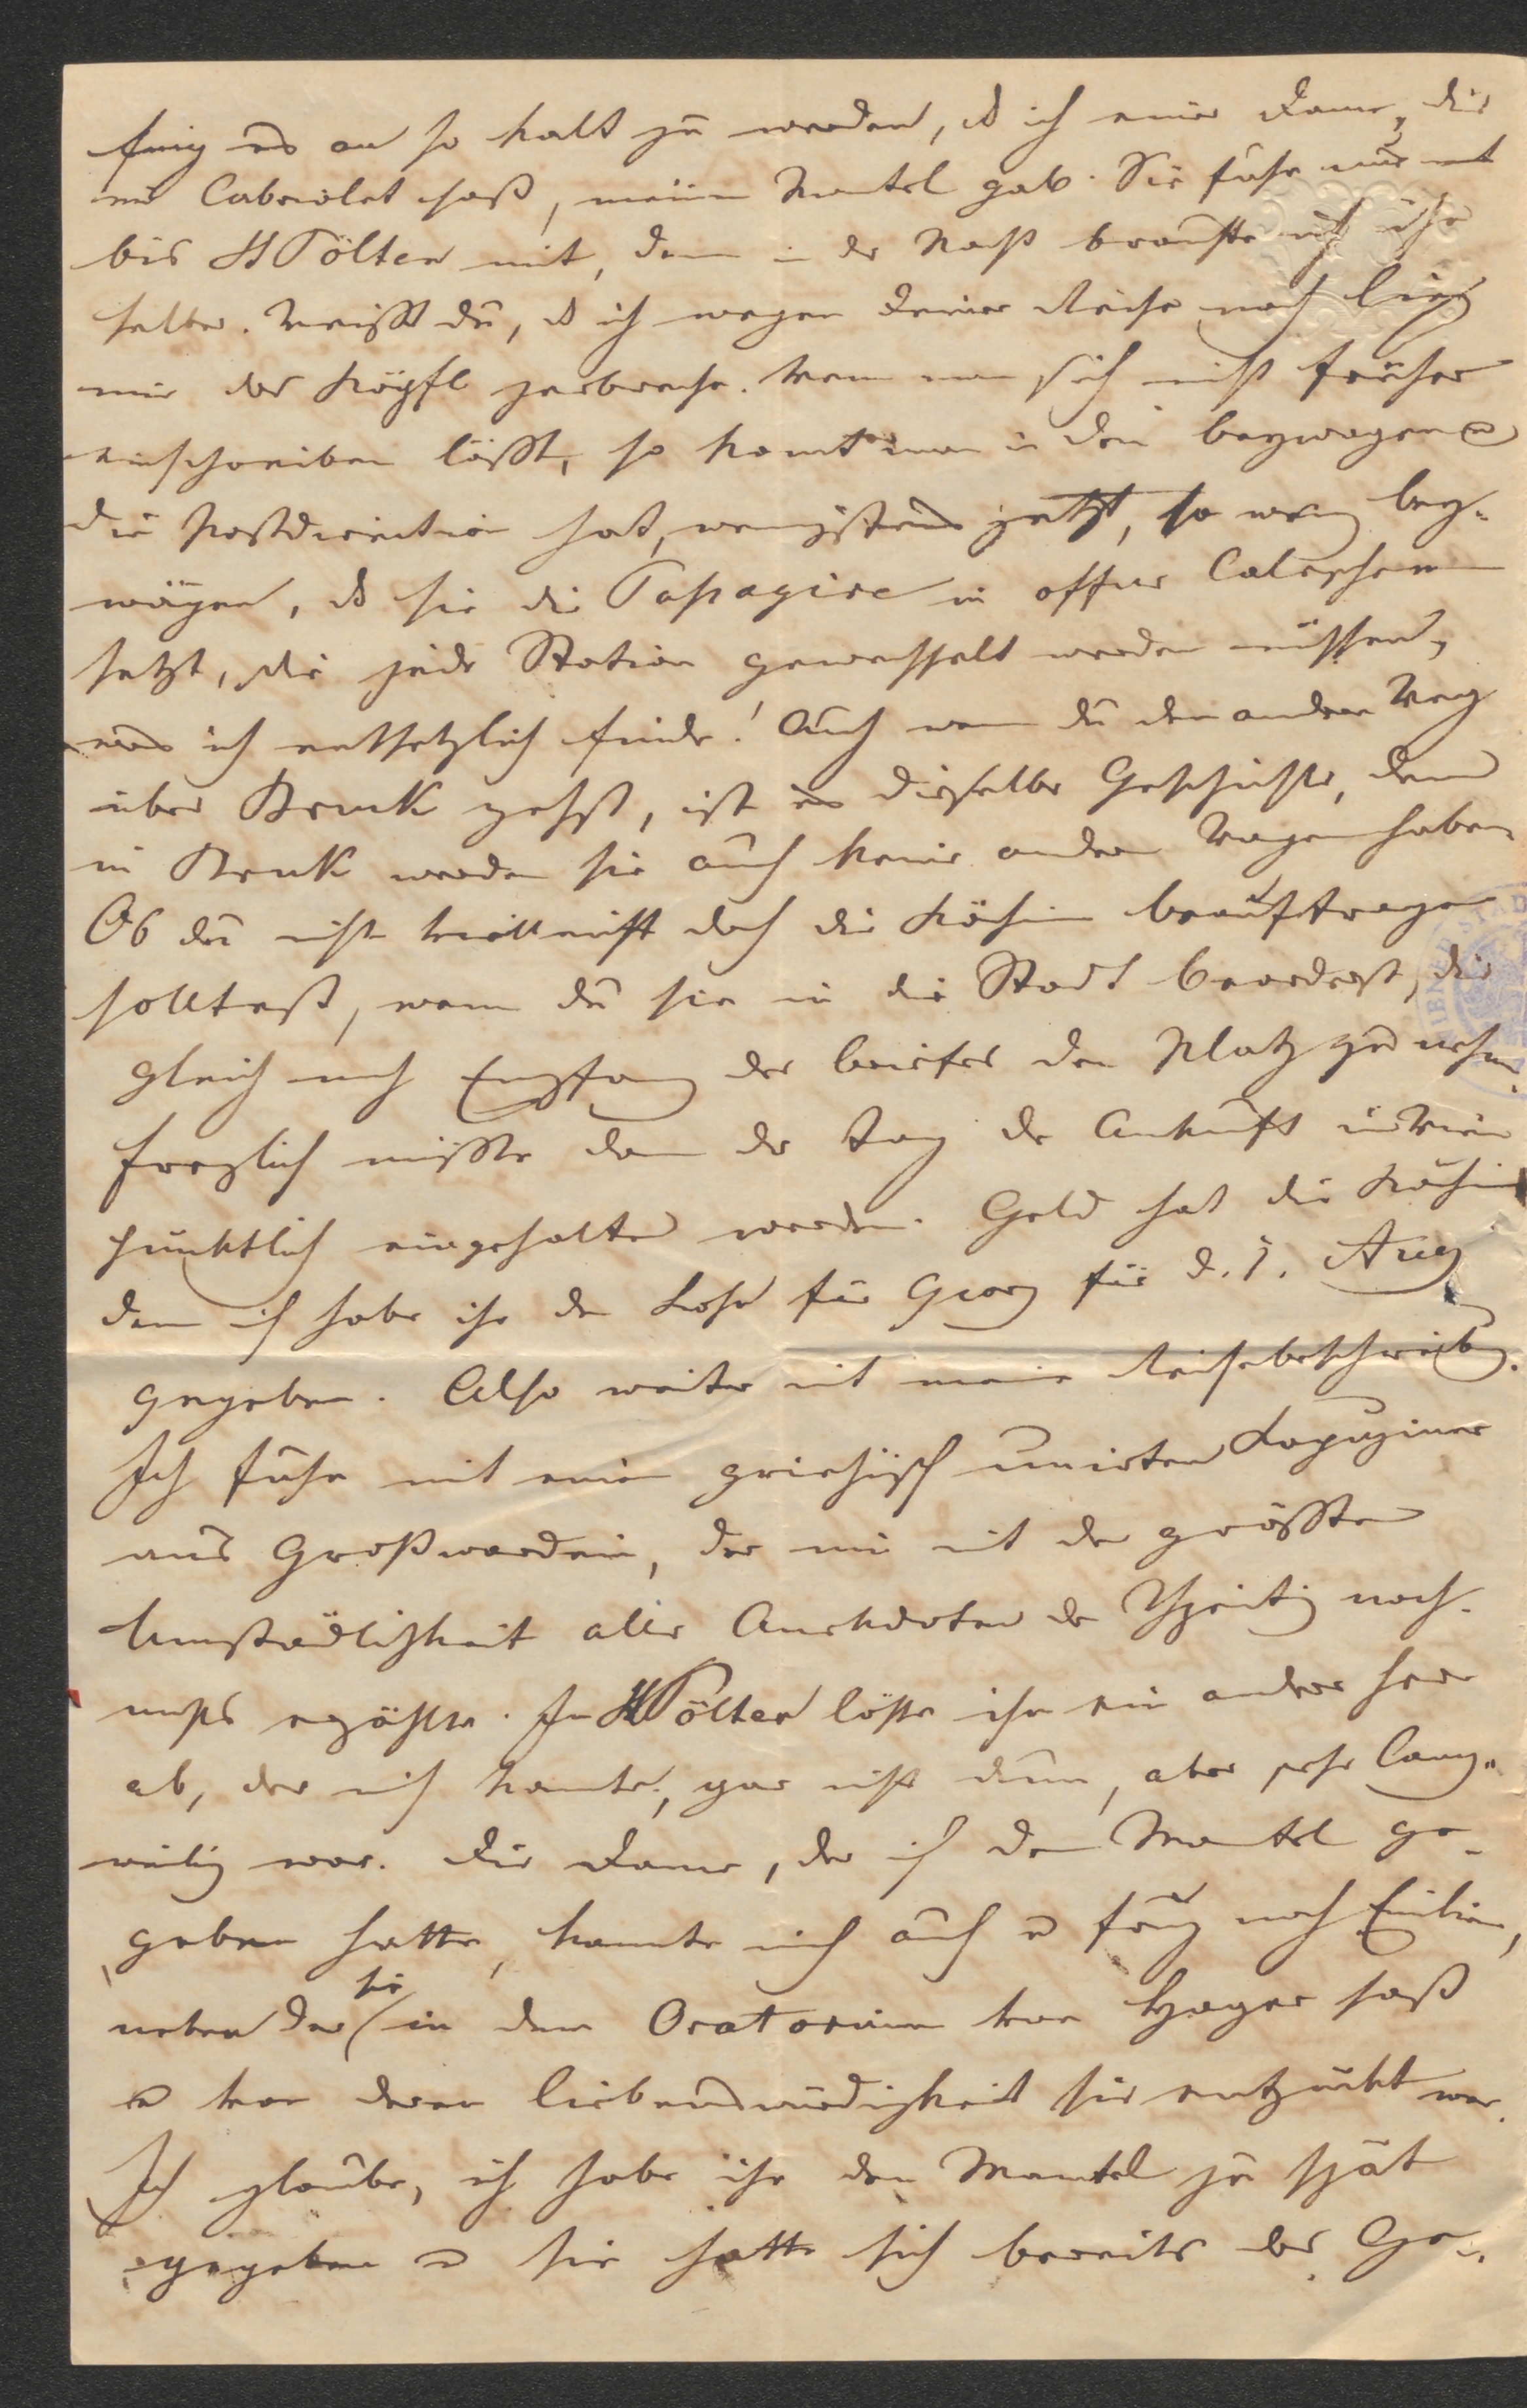 fing es an so kalt zu werden, dß ich einer Dame, die
im Cabriolet saß, meinen Mantel gab. Sie fuhr nur mit
bis St Pölten mit, denn in der Nacht brauchte ich ihn
selber. Weißt du, dß ich wegen deiner Reise nach Linz
mir das Köpfl zerbreche. Wenn man sich nicht früher
einschreiben läßt, so komt man in den beywagen u
die Postdirection hat, wenigstens jetzt, so wenig bey-
wägen, dß sie die Passagire in offne Caleschen
setzt, die jede Station gewechselt werden müssen,
was ich entsetzlich finde! Auch wenn du den andern Weg
über Bruk gehst, ist es dieselbe Geschichte, denn
in Bruk werden sie auch keine andern Wagen haben
Ob du nicht vielleicht doch die Köchin beauftragen
solltest, wenn du sie in die Stadt beorderst, dir
gleich nach Empfang des briefes den Platz zu nehmen.
freylich müßte dann der Tag der Ankunft in Wien
pünktlich eingehalten werden. Geld hat die Köchin
denn ich habe ihr den Lohn für Georg für d. 1. Aug
gegeben. Also weiter mit meiner Reisebeschreibung.
Ich fuhr mit einem griechisch unirten Kapuziner
aus Großwardein, der mir mit der größten
Umständlichkeit alle Anekdoten der Thzeitung noch-
mals erzählte. In St Pölten löste ihn ein anderer Herr
ab, der mich kannte, gar nicht dumm, aber sehr lang-
weilig war. Die Dame, der ich den Mantel ge-
geben hatte, kannte mich auch u frug nach Emilien,
neben der sie in dem Oratorium von Hager saß
u von deren liebenswürdigkeit sie entzückt war.
Ich glaube, ich habe ihr den Mantel zu spät
gegeben u sie hatte sich bereits das Ge-